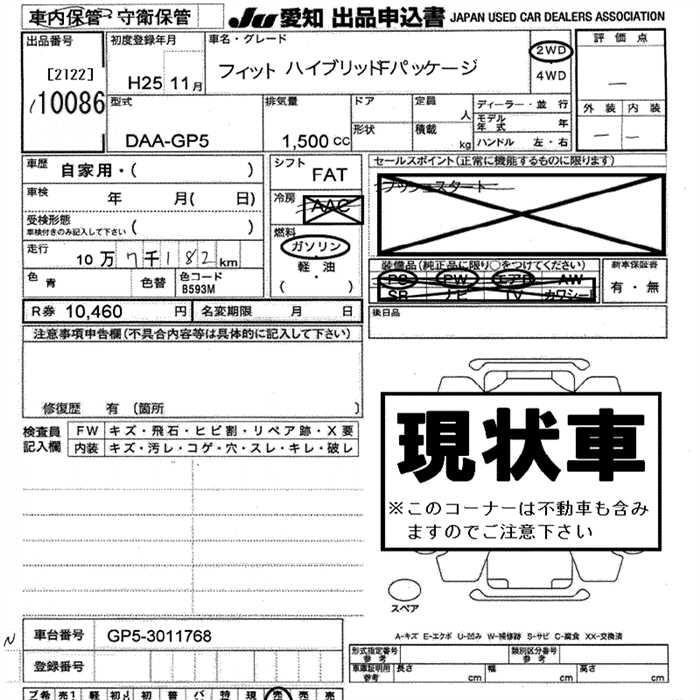 車内保管・守衛保管
JU 愛知 出品申込書 JAPAN USED CAR DEALERS ASSOCIATION
出品番号
[2122]
10086
初度登録年月
H25 11月
車名・グレード
フィット ハイブリッドFパッケージ
2WD
4WD
評価点
—
外装 内装
— —
型式
DAA-GP5
排気量
1,500 cc
ドア
形状
定員 人
積載 kg
ディーラー・並行
モデル年式 年
ハンドル 左・右
車歴 自家用・( )
車検 年 月( 日)
受検形態
車検付きのみ記入して下さい ( )
走行 10万7千182km
色 青 色替 色コード B593M
シフト
FAT
冷房
AAC
燃料
ガソリン
軽油
( )
セールスポイント(正常に機能するものに限ります)
プッシュスタート
装備品(純正品に限り○をつけてください)
PS PW エアB AW
SR ナビ TV カワシート
新車保証書
有・無
後日品
R券 10,460 円 名変期限 月 日
注意事項申告欄(不具合内容等は具体的に記入して下さい)
修復歴 有 (箇所 )
検査員記入欄
FW キズ・飛石・ヒビ割・リペア跡・X要
内装 キズ・汚レ・コゲ・穴・スレ・キレ・破レ
現状車
※このコーナーは不動車も含み
ますのでご注意下さい
スペア
A-キズ E-エクボ U-凹み W-補修跡 S-サビ C-腐食 XX-交換済
N
車台番号 GP5-3011768
登録番号
形式指定番号 参考
類別区分番号 参考
車庫証明用 参考 長さ cm 幅 cm 高さ cm